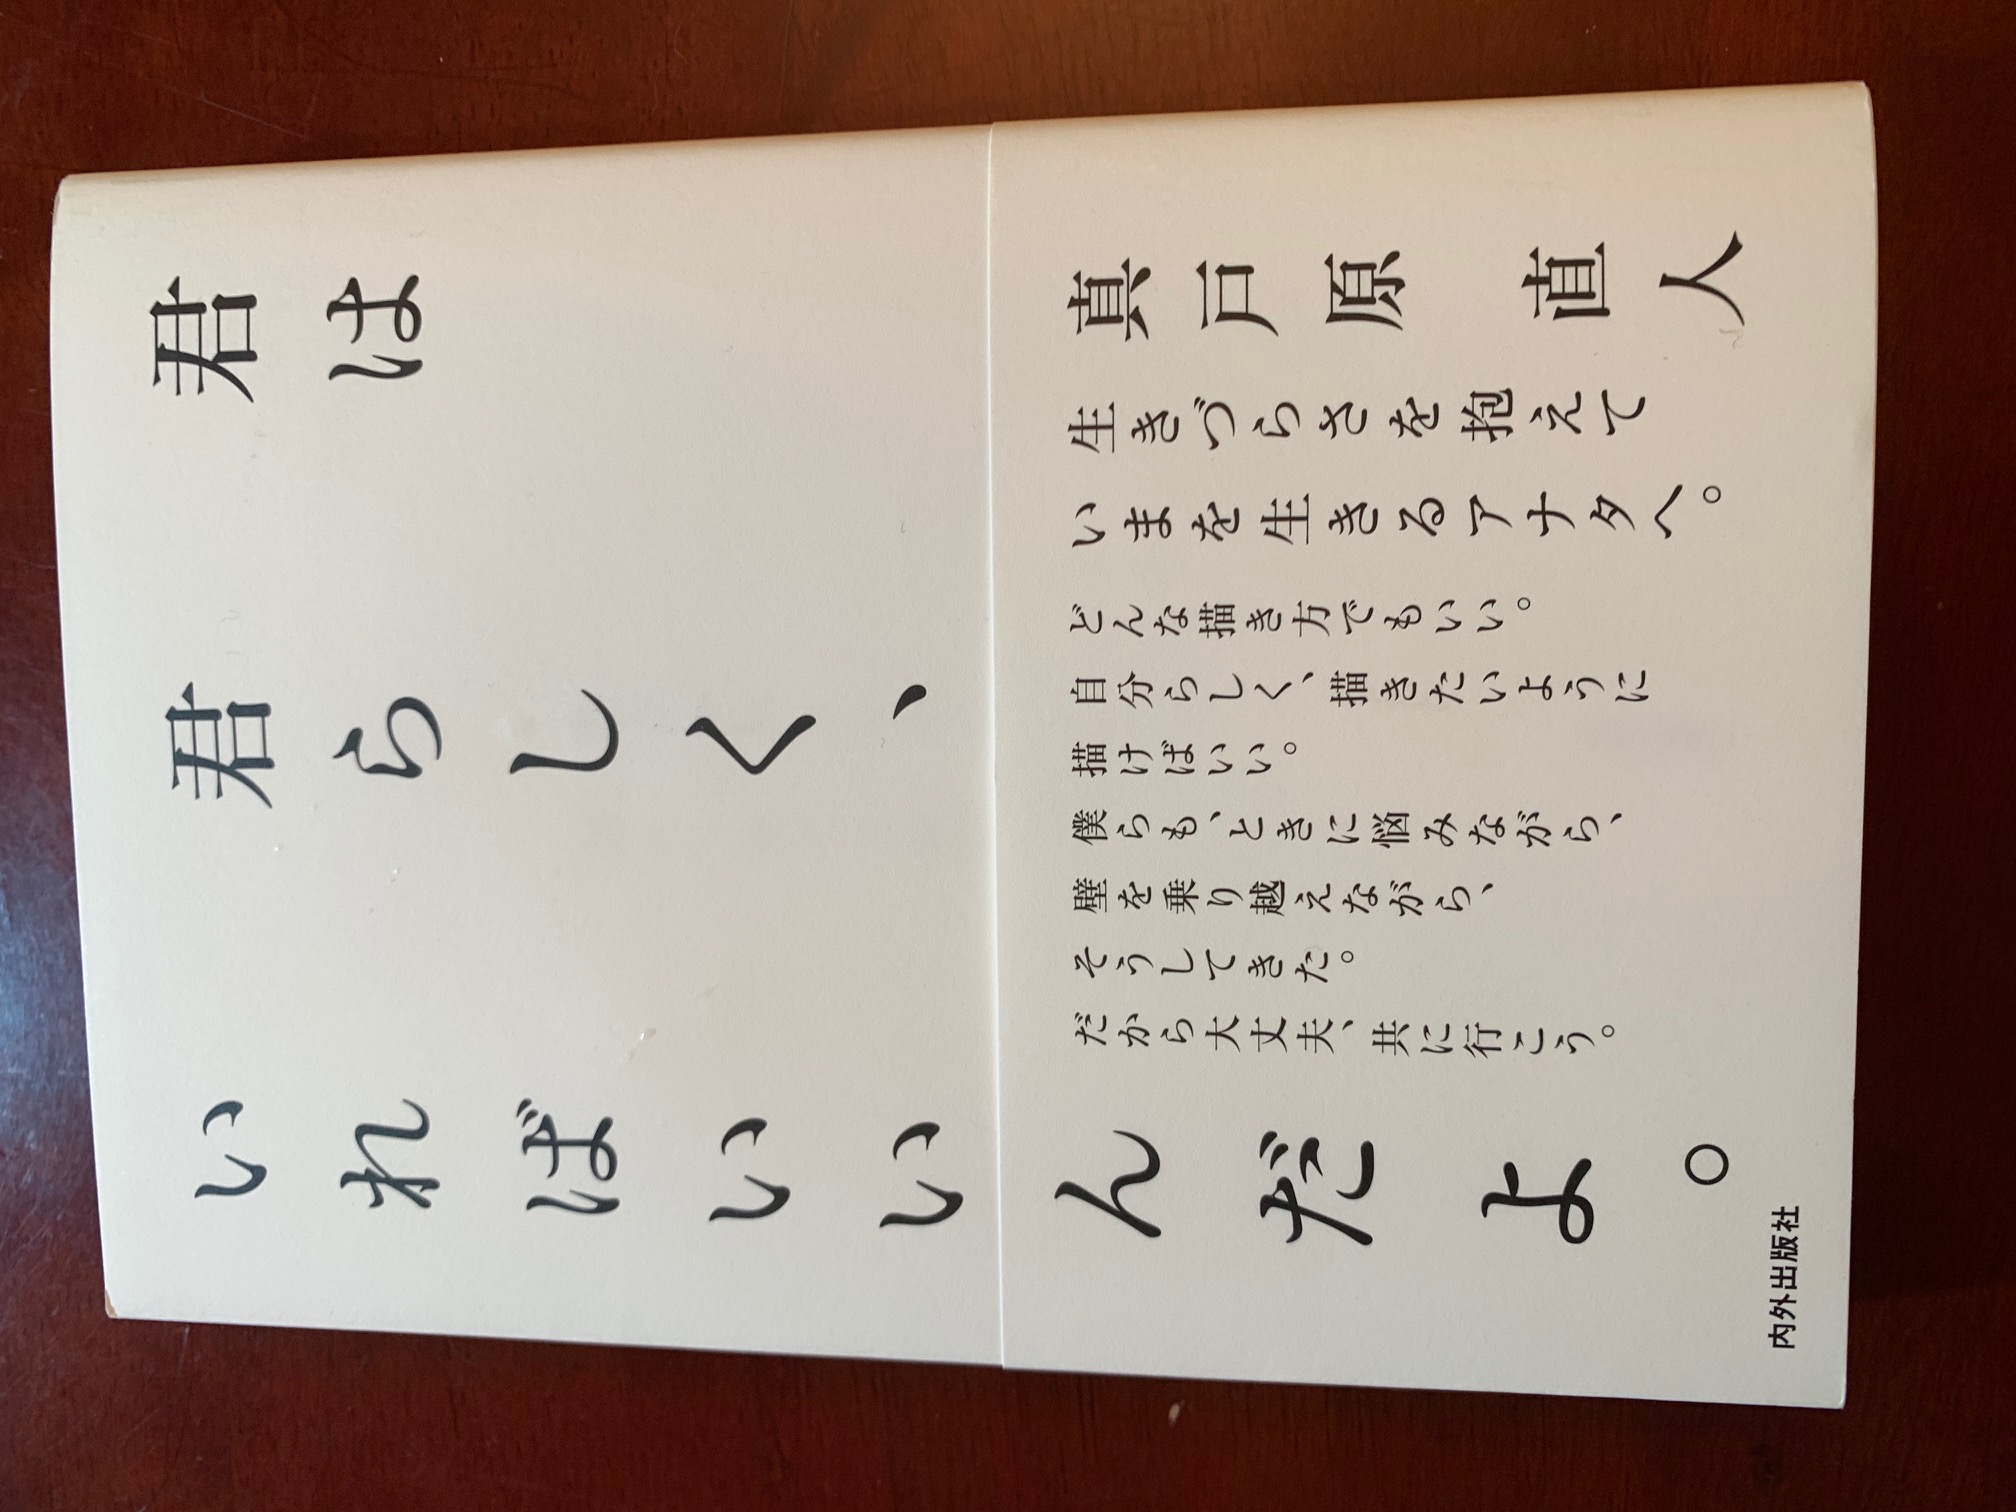 君は
君らしく、
いればいいんだよ。
真戸原 直人
生きづらさを抱えて
いまを生きるアナタへ。
どんな描き方でもいい。
自分らしく、描きたいように
描けばいい。
僕らも、ときに悩みながら、
壁を乗り越えながら、
そうしてきた。
だから大丈夫、共に行こう。
内外出版社